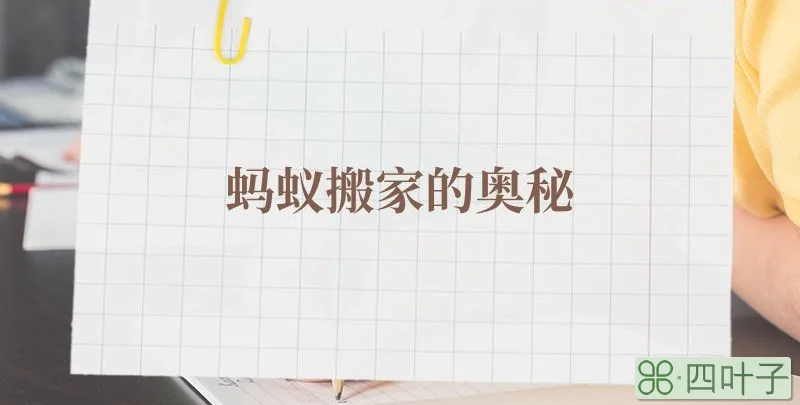 蚂蚁搬家的奥秘
四叶子